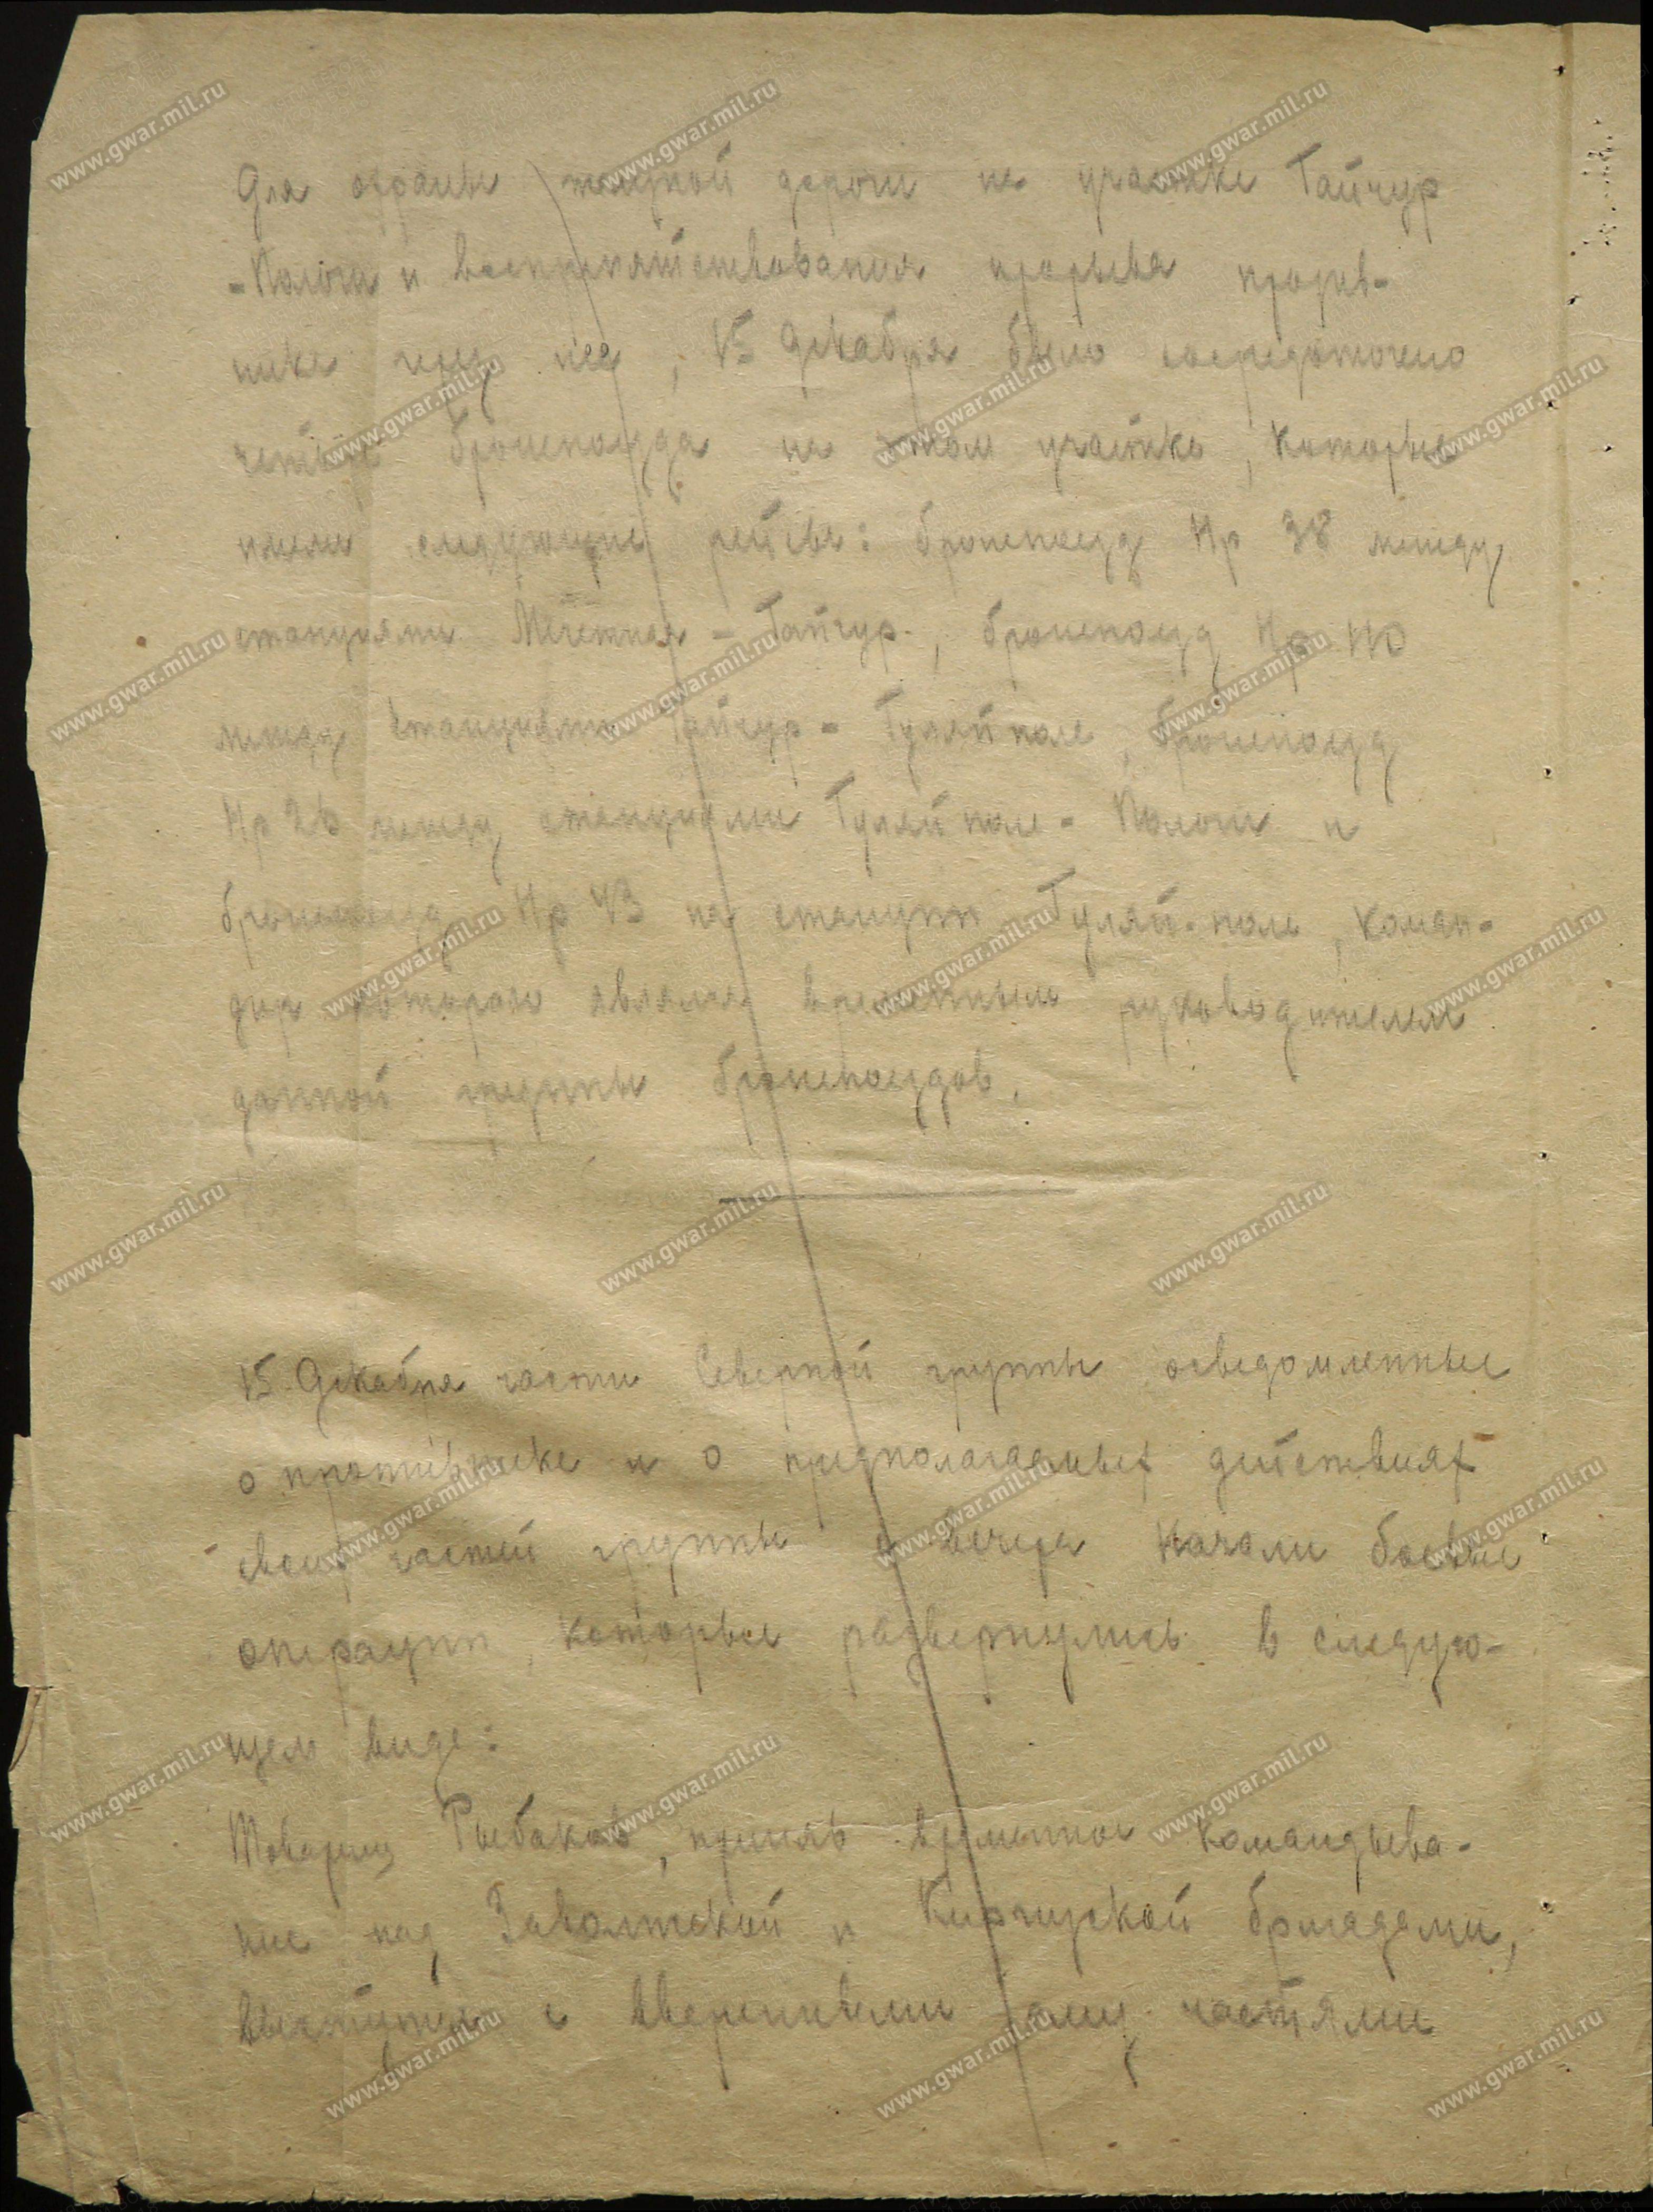 Для охраны железной дороги на участке Гайчур
-Пологи и воспрепятствования прорыва против-
ника через нее, 15 Декабря было сосредоточено
четыре бронепоезда на этом участке, которые
имели следующие рейсы: бронепоезд Нр 38 между
станциями Мечетная - Гайчур., бронепоезд Нр
между станциями Гайчур - Гуляй поле, бронепоезд
Нр между станциями Гуляй поле - Пологи и
бронепоезд Нр на станции Гуляй-поле, коман-
дир которого являлся временным руководителем
данной группы бронепоездов.
15 Декабря части Северной группы осведомленные
о противнике и о предполагаемых действиях
своих частей группы с вечера начали боевые
операции, которые развернулись в следую-
щем виде:
Товарищ Рыбаков, приняв временное командыва-
ние над Заволжской и Киргизской бригадами,
выступил с вверенными ему частями